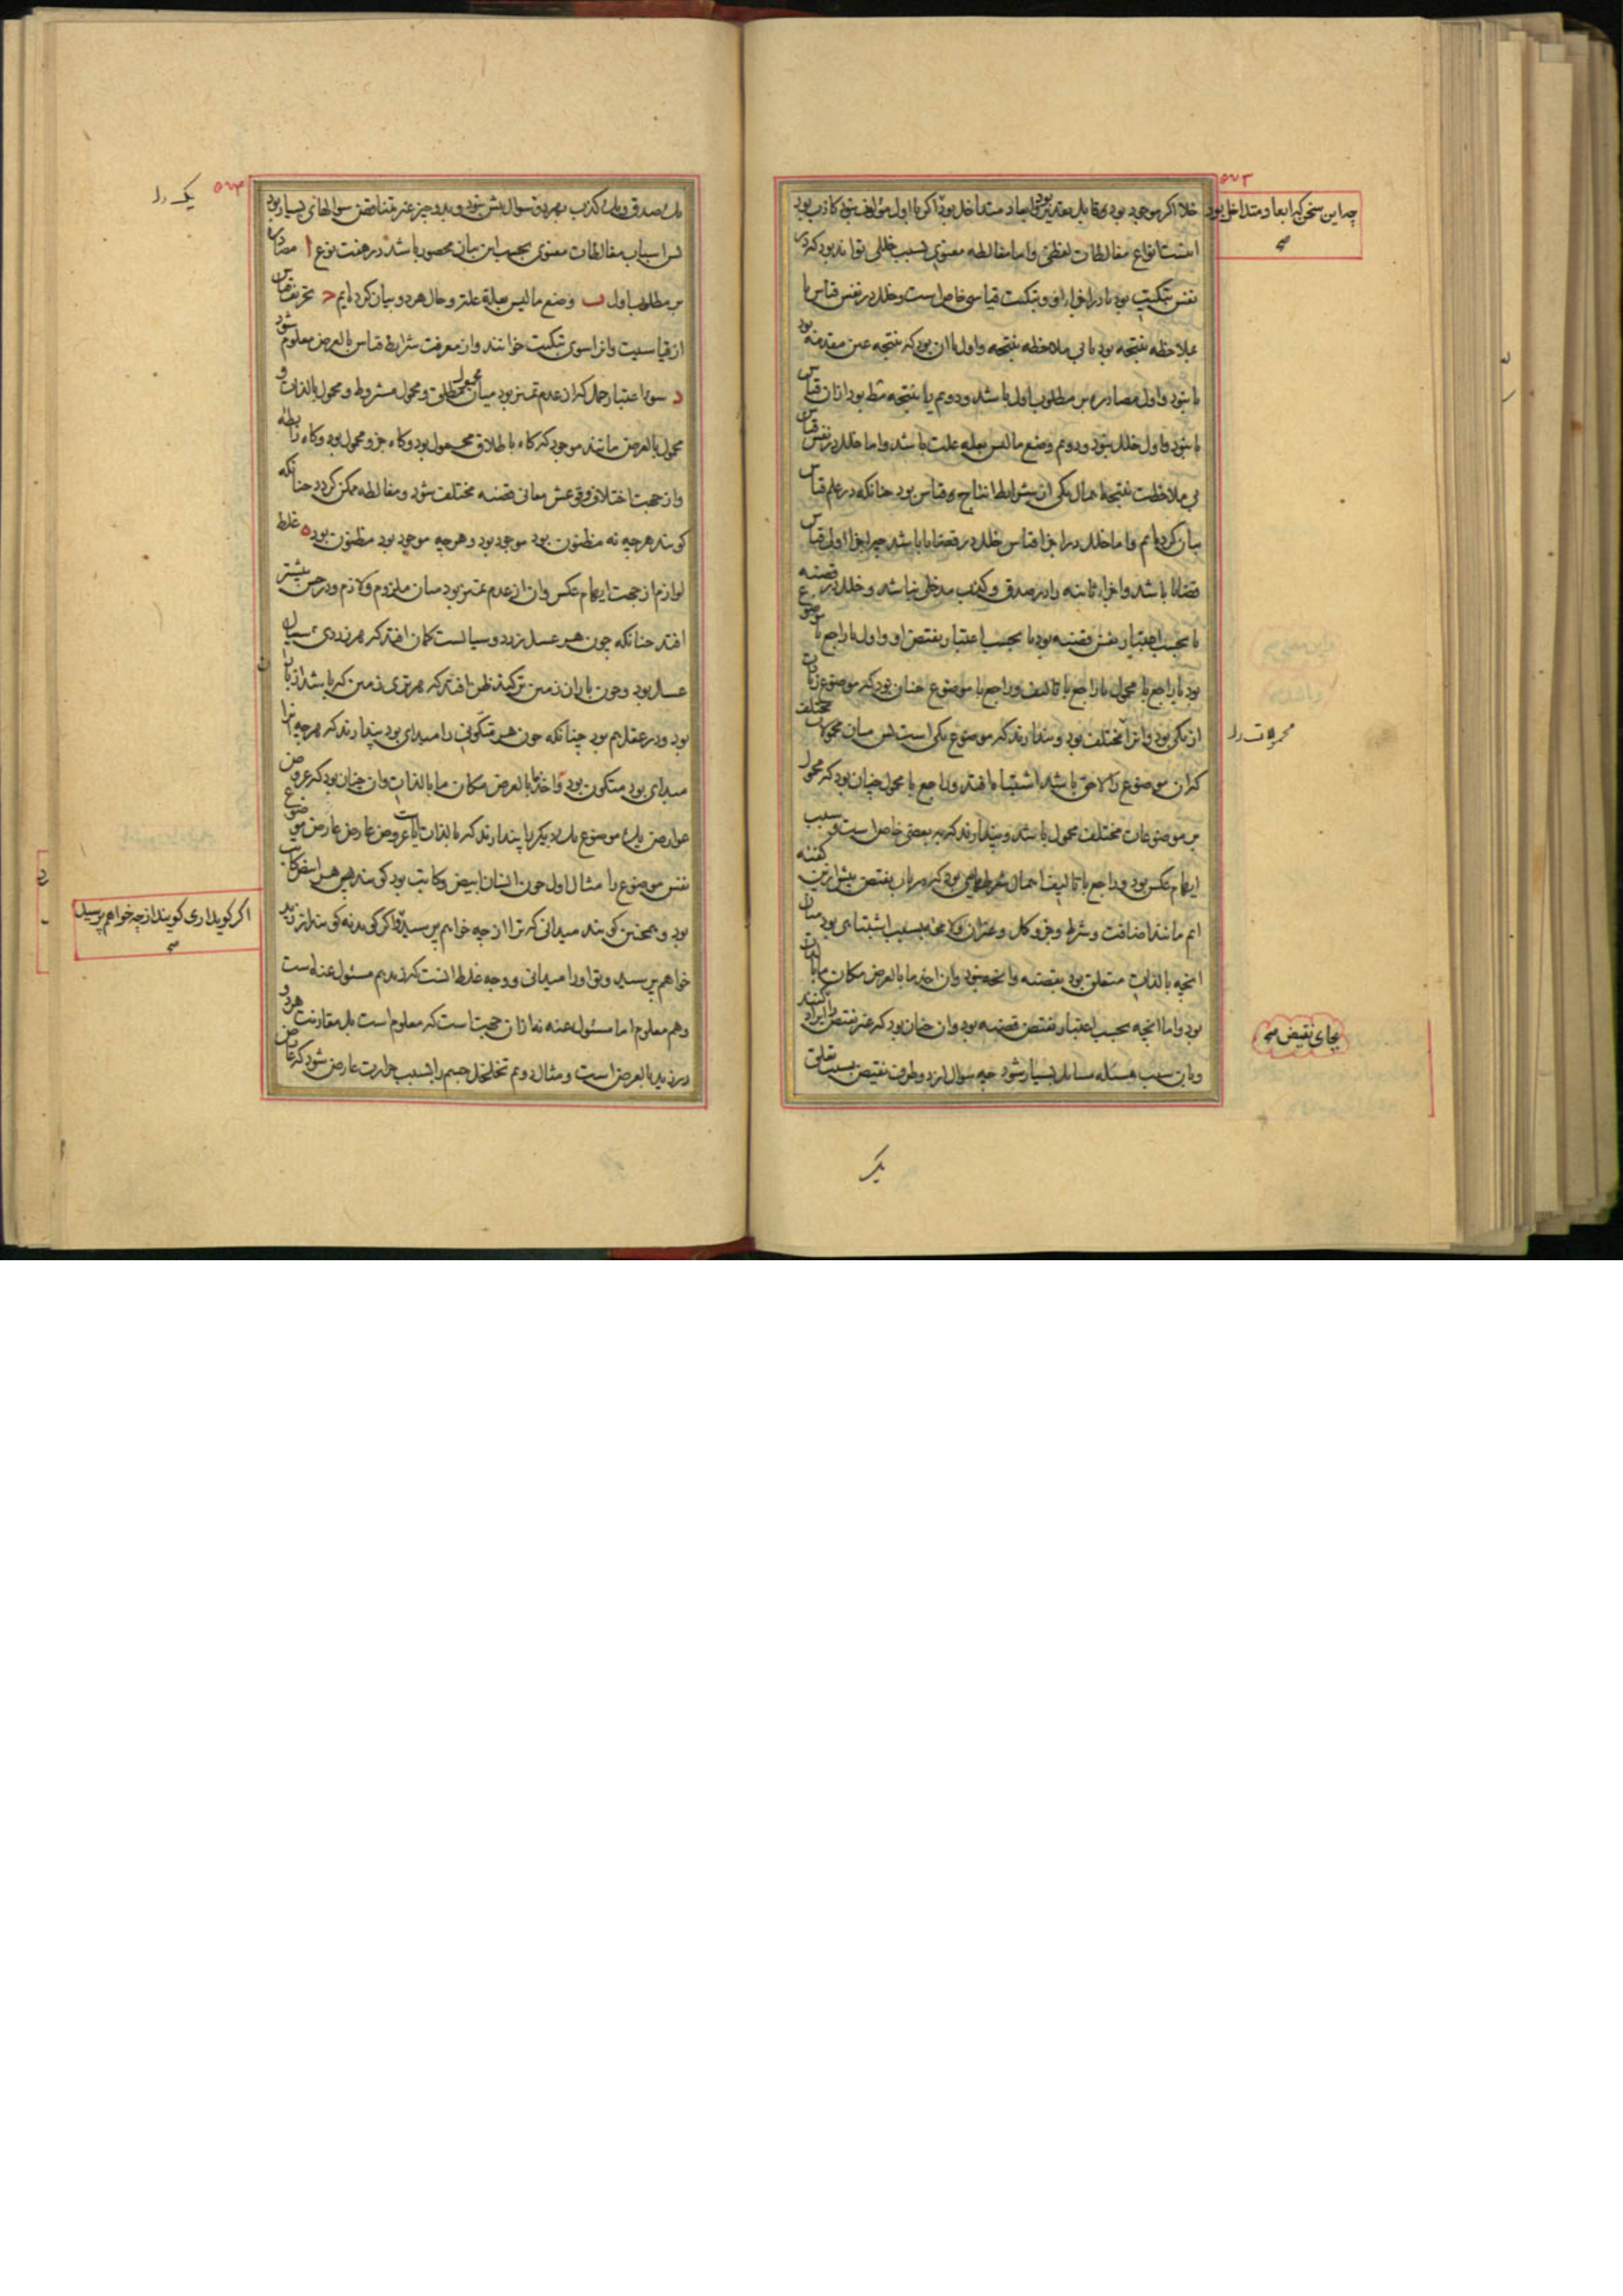 ۵۷۳
خلا اگر موجود بود
چه این سخن که ابعاد متداخل بود
است انواع مغالطات لفظی و اما مغالطه معنوی بسبب خللی تواند بود که در
نفس تبکیت بود یا در اجزاء او و تبکیت قیاسی خاص است و خلل در نفس قیاس یا
بملاحظه نتیجه بود یا بی ملاحظه نتیجه و اول یا ان بود که نتیجه عین مقدمه بود
یا نبود و اول مصادره بر مطلوب اول باشد و دویم یا نتیجه مط بود از ان قیاس
یا نبود و اول خلل نبود و دویم وضع ما لیس بعله علت باشد و اما خلل در نفس قیاس
بی ملاحظت نتیجه اهمال یکی از شرایط انتاج قیاس بود چنانکه در علم قیاس
بیان کرده‌ایم و اما خلل در اجزا قیاس خلل در قضایا باشد چه اجزا اول قیاس
قضایا باشد و اجزاء ثانیه را در صدق و کذب مدخلی نباشد و خلل در قضیه
یا بحسب اعتبار نفس قضیه بود یا بحسب اعتبار نقیض او و اول یا راجع با موضوع
بود یا راجع با محول یا راجع با تالیف و راجع با موضوع چنان بود که موضوع زیادت
از یکی بود و انرا مختلف بود و پندارند که موضوع یکی است پس میان محمولات مختلف
محمولات را
کران موضوع را لاحق باشد اشتباه افتد و راجع با محول چنان بود که محول
بر موضوعات مختلف محمول باشد و پندارند که بر بعضی خاص است و سبب
ایهام عکس بود و راجع با تالیف اهمال شرایطی بود که در باب نقیض پیش ازین گفته
ایم مانند اضافت و شرط و جزو و کل و غیر ان و لا محه بسبب اشتباهی بود میان
انچه بالذات متعلق بود بقضیه و انچه نبود و ان اخذ ما بالعرض مکان ما بالذات
بود و اما انچه بحسب اعتبار نقیض قضیه بود و ان چنان بود که غیر نقیض را ایراد کنند
بجای نقیض
و باین سبب مسئله مسایل بسیار شود چه سوال از دو طرف نقیض بسبب تعلق
یک
۵۷۴
یک را
یک صدق و یک کذب بهر دو سوال بیش نبود و بدو چیز غیر متناقض سوالهای بسیار بود
پس اسباب مغالطات معنوی بحسب این بیان محصور باشد در هفت نوع ا مصادره
بر مطلوب اول ب وضع ما لیس بعلة علة و حال هر دو بیان کرده‌ایم ج تحریف قیاس
از قیاسیت و انرا سوی تبکیت خوانند و از معرفت شرایط قیاس بالعرض معلوم شود
د سوء اعتبار حمل که از عدم تمیز بود میان محمول مطلق و محول مشروط و محول بالذات و
محول بالعرض مانند موجود که گاه باطلاق محمول بود و گاه جزو محمول بود و گاه رابطه
و از جهت اختلاف وقوعش معانی قضیه مختلف شود و مغالطه ممکن گردد چنانکه
گویند هر چه نه مظنون بود موجود بود و هر چه موجود بود مظنون بود ه غلط
لوازم از جهت ایهام عکس و ان از عدم تمیز بود میان ملزوم و لازم و در حس بیشتر
افتد چنانکه چون هر عسل زرد و سیالست گمان افتد که هر زردی سیال
عسل بود و چون باران زمین تر کند ظن افتد که هر تری زمین که باشد از باران
بود و در عقل هم بود چنانکه چون هر متکونی را مبدای بود پندارند که هر چه انرا
مبدای بود متکون بود و اخذ ما بالعرض مکان ما بالذات و ان چنان بود که عروض
عوارض یک موضوع یک دیگر را پندارند که بالذاتست یا عروض عارض عارض موضوع
نفس موضوع را مثال اول چون انسان ابیض و کاتب بود گویند پس هر ابیض کاتب
بود و همچنین گویند میدانی که ترا از چه خواهم پرسید
اگر گوید اری گویند از چه خواهم پرسید
خواهم پرسید و تو او را میدانی و وجه غلط انست که زید هم مسئول عنه است
و هم معلوم اما مسئول عنه نه از ان جهت است که معلوم است بل مقارنت هر دو
در زید بالعرض است و مثال دویم تخلخل جسم را بسبب حرارت عارض شود که عارض